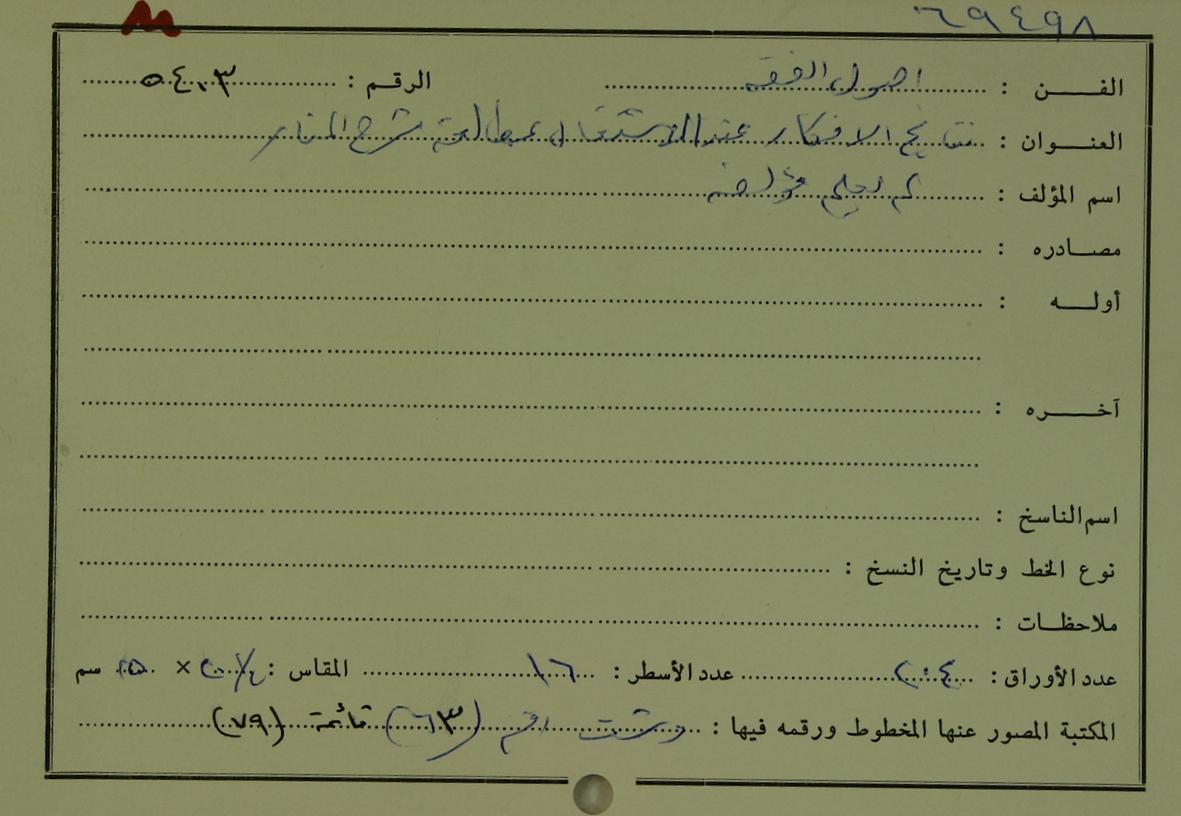 ٦٩٤٩٨
الفن : اصول الفقه الرقم : ٥٤٠٣
العنوان : نتايج الافكار عند الاشتغال بمطالعة شرح المنار
اسم المؤلف : لم يعلم مؤلفه
مصادره :
أوله :
آخره :
اسم الناسخ :
نوع الخط وتاريخ النسخ :
ملاحظات :
عدد الأوراق : عدد الأسطر : ١٦ المقاس : × سم
المكتبة المصور عنها المخطوط ورقمه فيها : دشت رقم (٦٣) قائمة (٧٩)